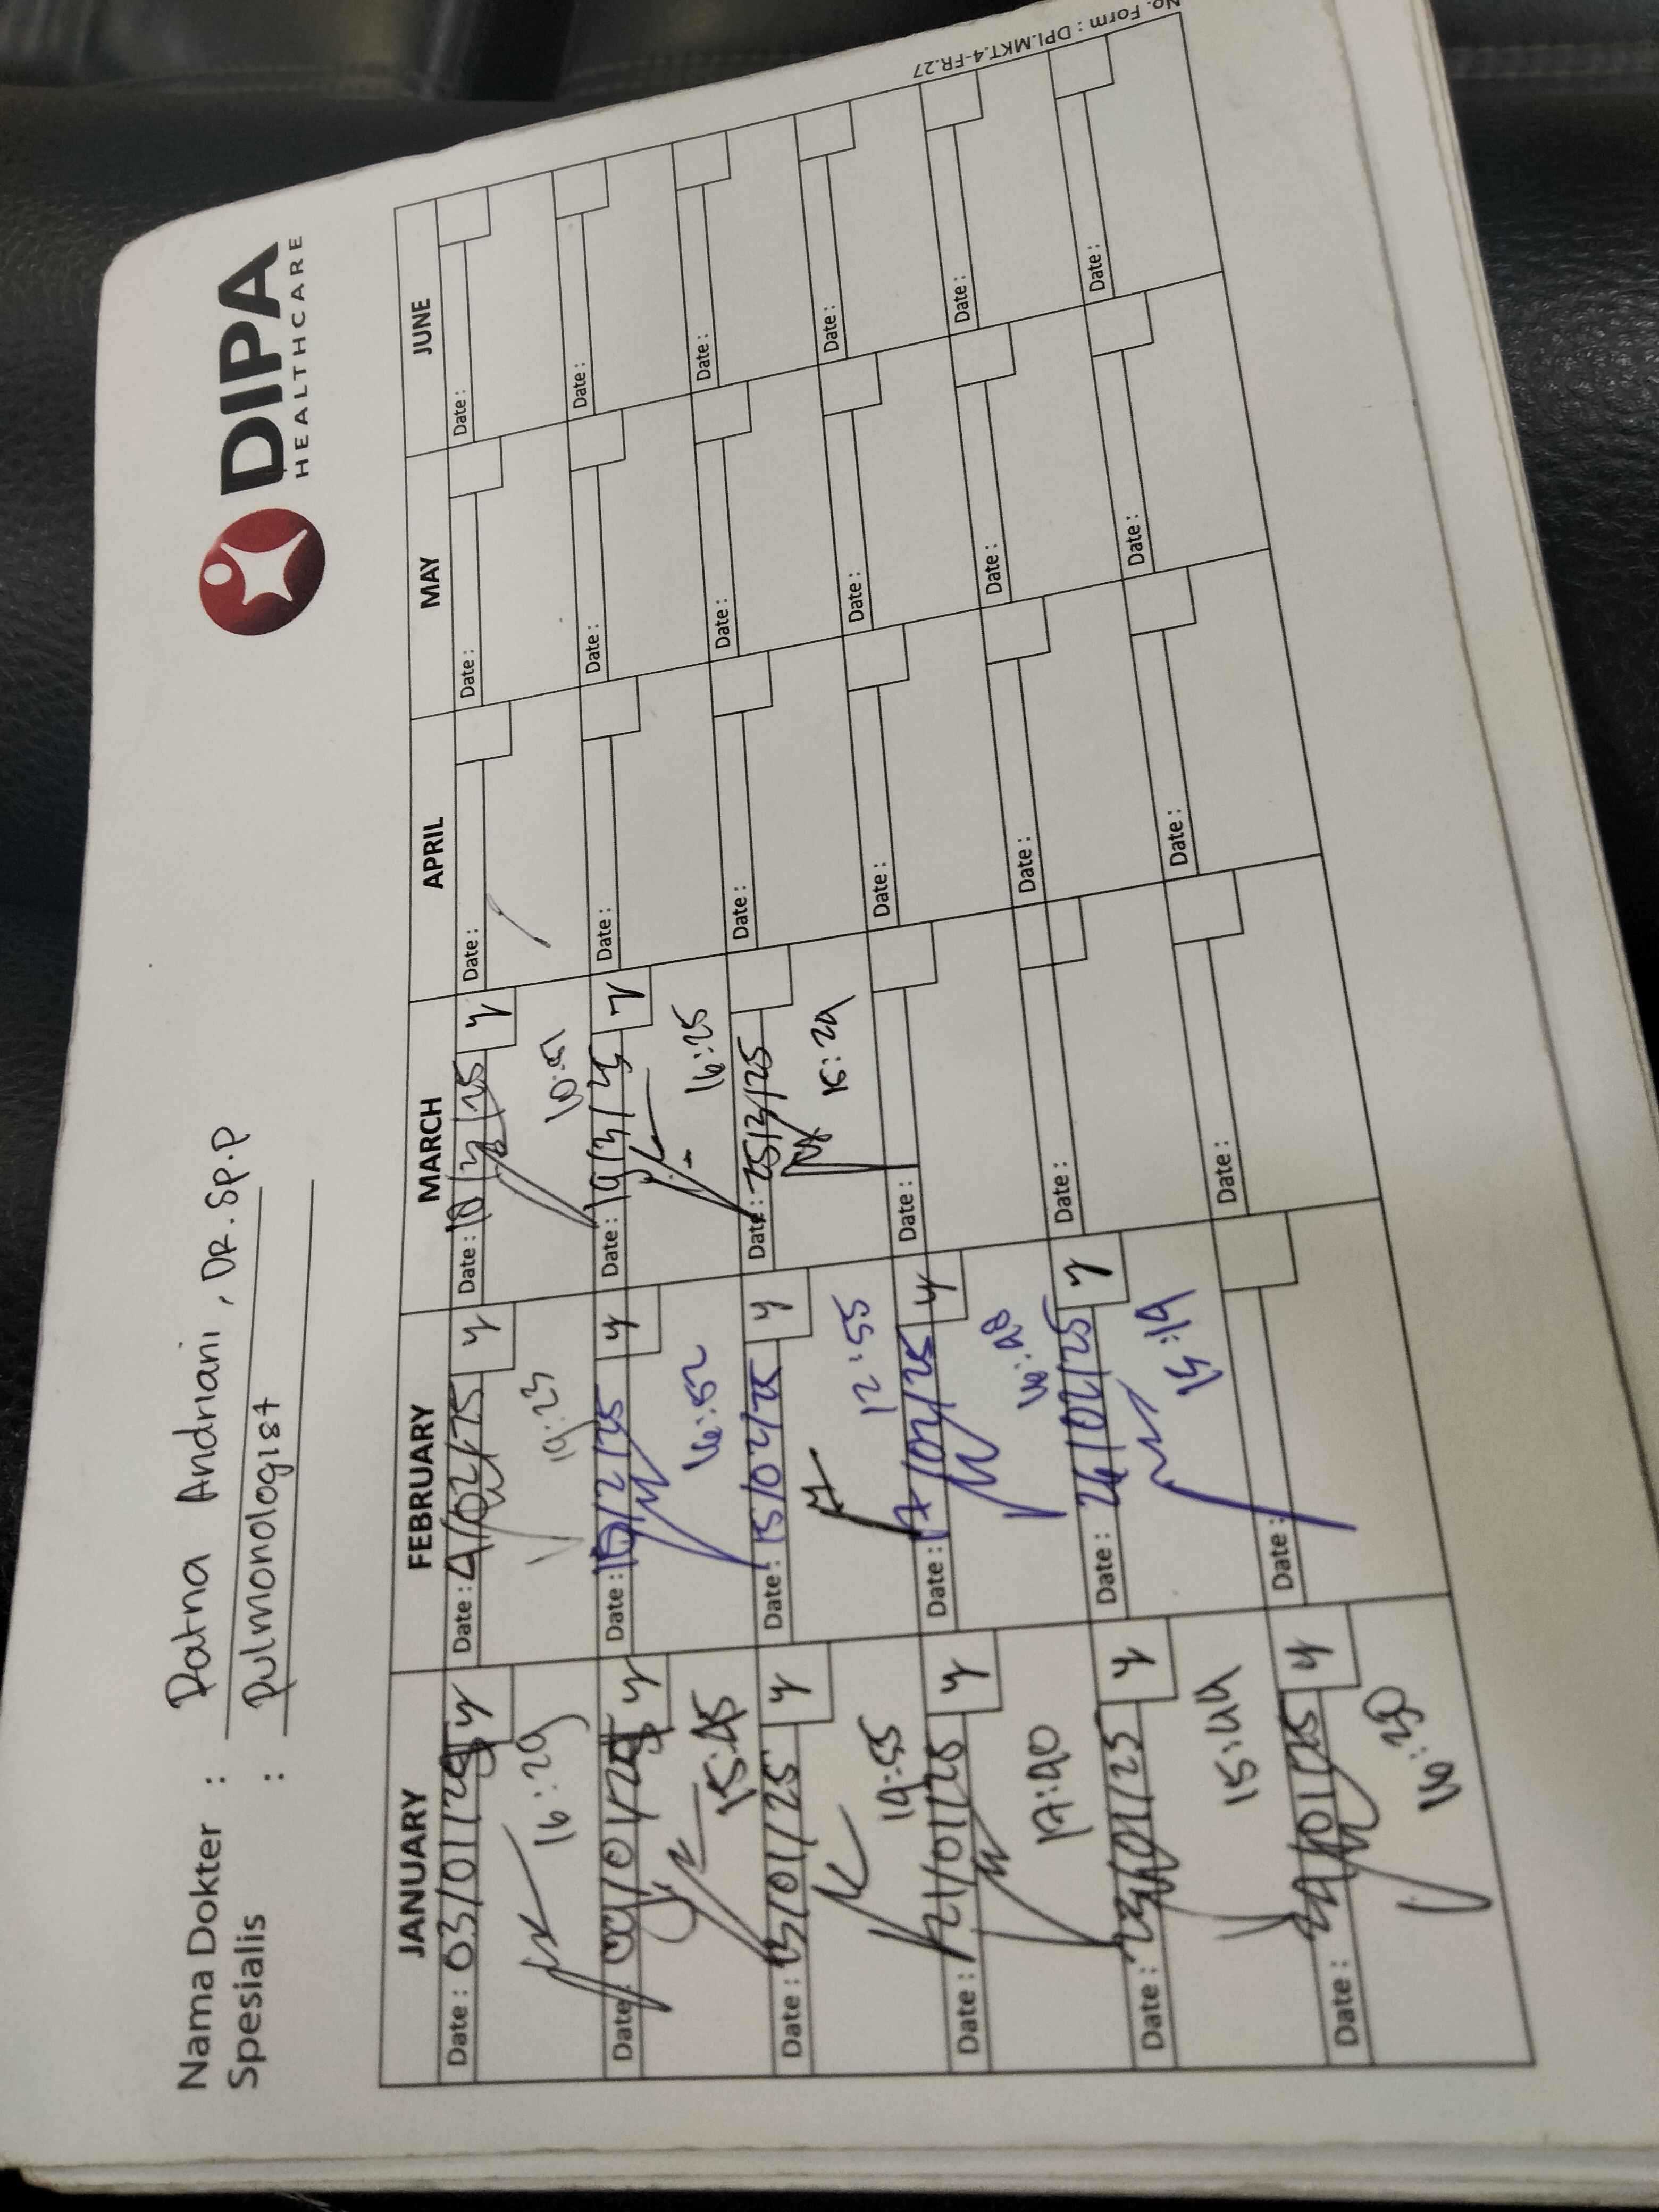 DIPA
HEALTHCARE
Nama Dokter : Datna Andriani, DR. SP.P
Spesialis : Pulmonologist
JANUARY FEBRUARY MARCH APRIL MAY JUNE
Date : 03/01/25 y Date : 4/02/25 y Date : 10/3/25 y Date : Date : Date :
16:29 19:23
Date : 09/01/25 y Date : 10/2/25 y Date : 19/3/25 y Date : Date : Date :
15:45 16:52 16:25
Date : 13/01/25 y Date : 15/02/25 y Date : 25/3/25 Date : Date : Date :
19:55 12:55 15:29
Date : 21/01/25 y Date : 17/02/25 y Date : Date : Date : Date :
17:40 16:48
Date : 23/01/25 y Date : 26/02/25 y Date : Date : Date : Date :
15:44 15:19
Date : 29/01/25 y Date : Date : Date : Date : Date :
16:30
No. Form : DPI.MKT.4-FR.27